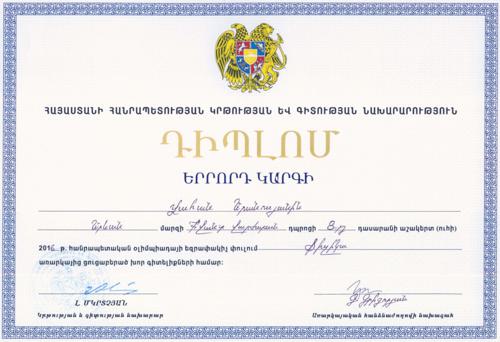 ՀԱՅԱՍՏԱՆԻ ՀԱՆՐԱՊԵՏՈՒԹՅԱՆ ԿՐԹՈՒԹՅԱՆ ԵՎ ԳԻՏՈՒԹՅԱՆ ՆԱԽԱՐԱՐՈՒԹՅՈՒՆ
ԴԻՊԼՈՄ
ԵՐՐՈՐԴ ԿԱՐԳԻ
Վահան
մարզի դպրոցի 8-րդ դասարանի աշակերտ (ուհի)
թ. հանրապետական օլիմպիադայի եզրափակիչ փուլում ֆիզիկա
առարկայից ցուցաբերած խոր գիտելիքների համար:
Լ. ՄԿՐՏՉՅԱՆ
Կրթության և գիտության նախարար
Առարկայական հանձնաժողովի նախագահ